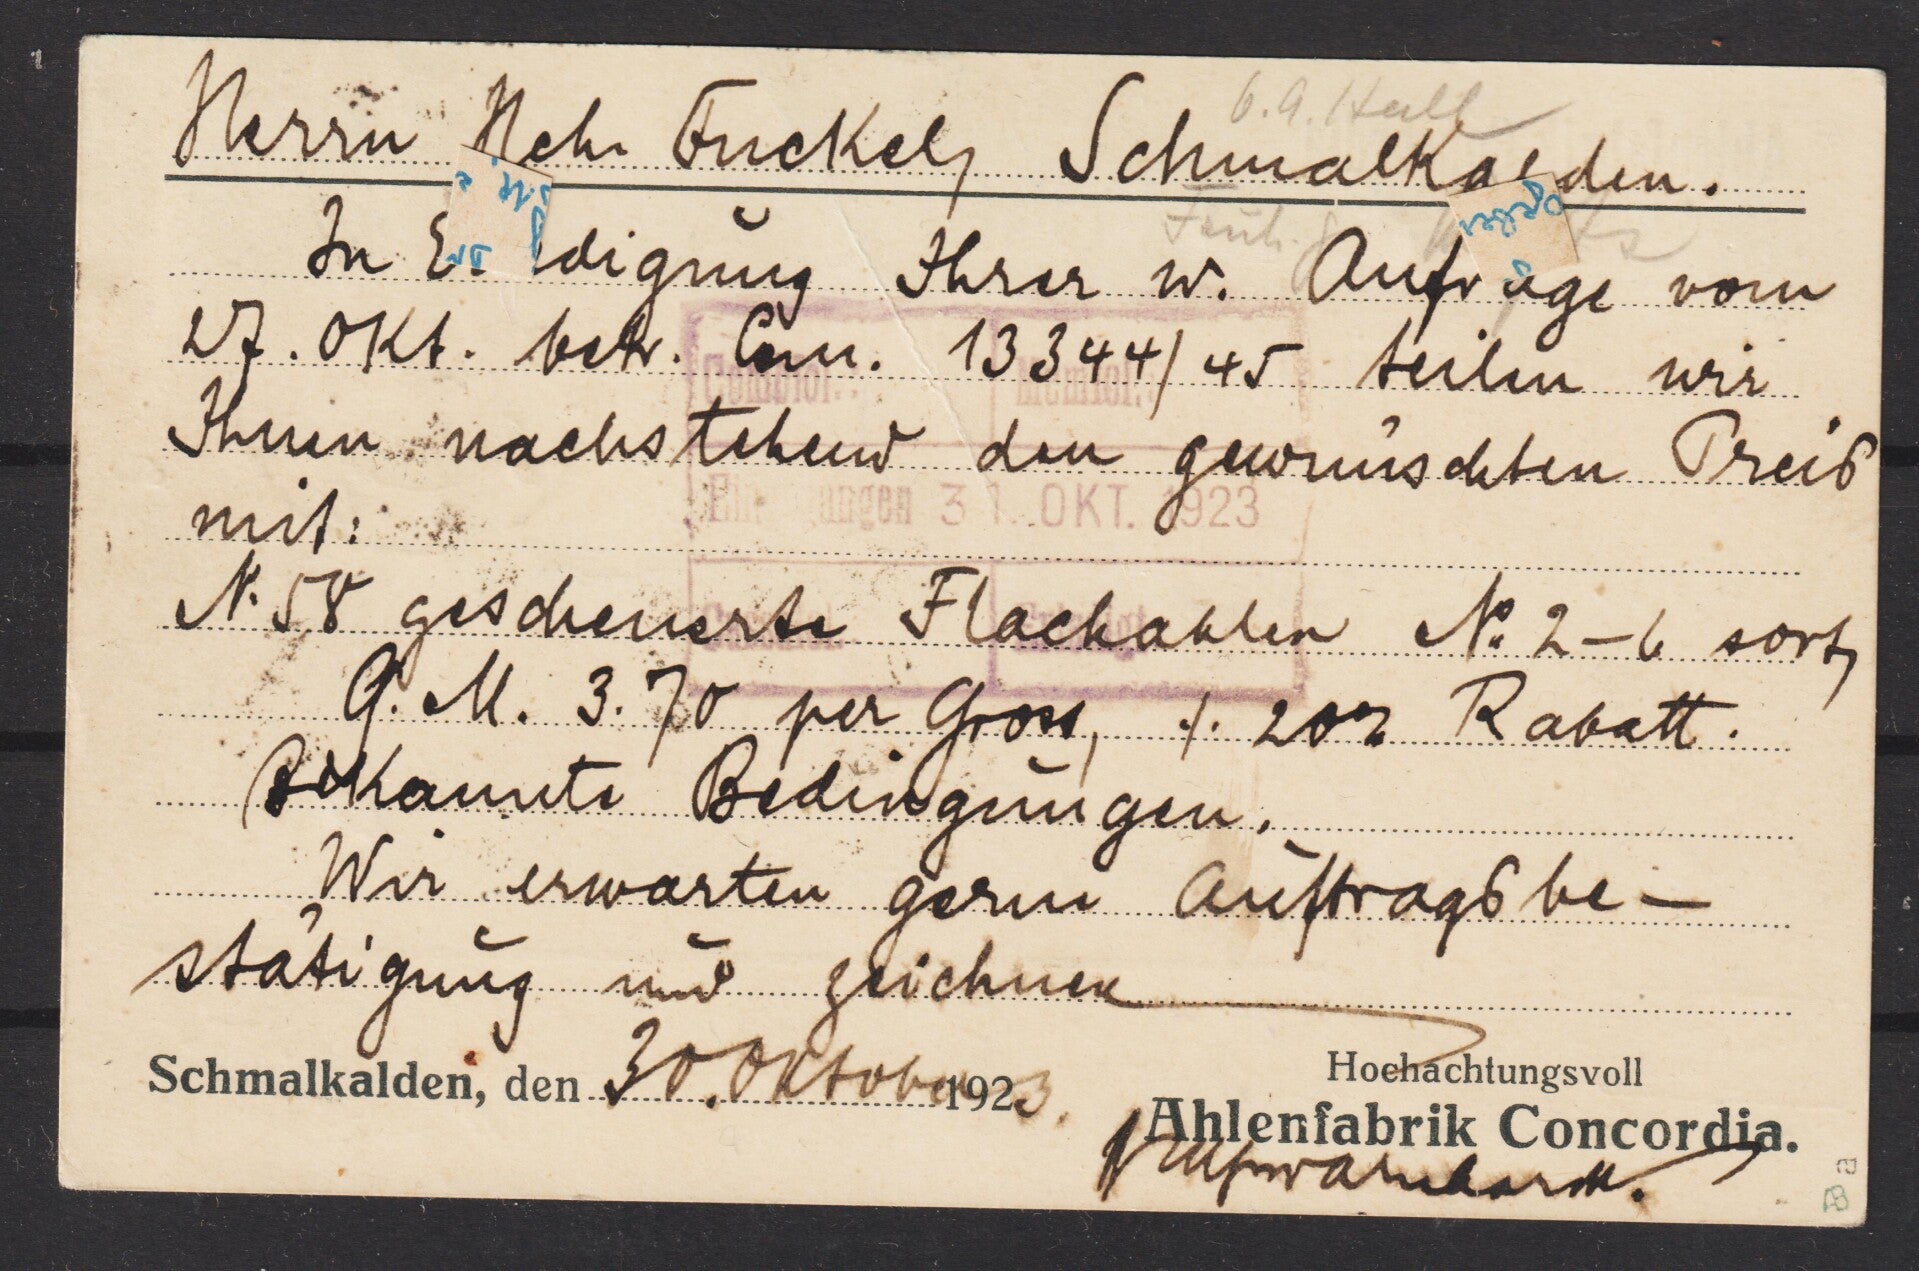 Herrn Hch. Fuckel, Schmalkalden.
In Erledigung Ihrer w. Anfrage vom
27. Okt. betr. Com. 13344/45 teilen wir
Ihnen nachstehend den gewünschten Preis
mit:
N. 58 gescheuerte Flachahlen No. 2-6 sort,
G.M. 3.70 per Gross, ./. 20% Rabatt.
Bekannte Bedingungen.
Wir erwarten gern Auftragsbe-
stätigung und zeichnen
Schmalkalden, den 30. Oktober 1923.
Hochachtungsvoll
Ahlenfabrik Concordia.
31. OKT. 1923